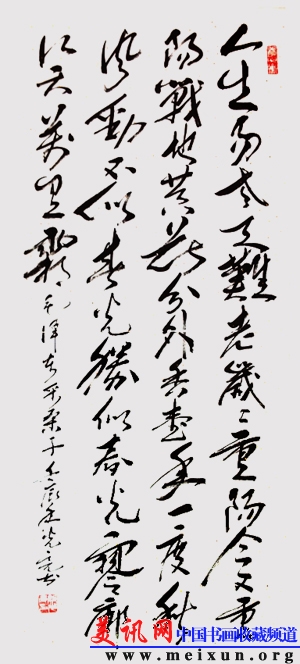 人生易老天難老歲々重陽今又重
陽戰地黄花分外香壹年一度秋
风勁不似春光勝似春光寥廓
江天萬里霜 毛澤东采桑子
美讯网 中国书画收藏频道
www.meixun.org